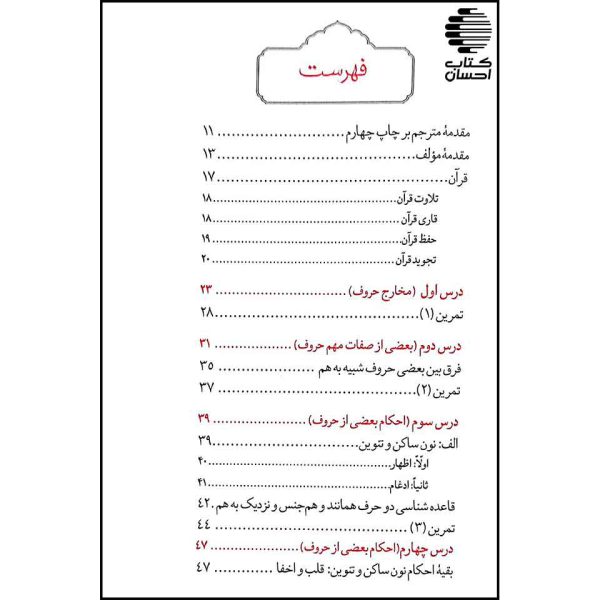 کتاب
احسان
فهرست
مقدمهٔ مترجم بر چاپ چهارم .......................... ۱۱
مقدمهٔ مؤلف .......................................... ۱۳
قرآن ................................................ ۱۷
تلاوت قرآن .......................................... ۱۸
قاری قرآن .......................................... ۱۸
حفظ قرآن .......................................... ۱۹
تجوید قرآن .......................................... ۲۰
درس اول (مخارج حروف) ............................... ۲۳
تمرین (۱) .......................................... ۲۸
درس دوم (بعضی از صفات مهم حروف) .................... ۳۱
فرق بین بعضی حروف شبیه به هم .................... ۳۵
تمرین (۲) .......................................... ۳۷
درس سوم (احکام بعضی از حروف) ........................ ۳۹
الف: نون ساکن و تنوین ............................. ۳۹
اولاً: اظهار .......................................... ۴۰
ثانیاً: ادغام .......................................... ۴۱
قاعده شناسی دو حرف همانند و هم‌جنس و نزدیک به هم . ۴۲
تمرین (۳) .......................................... ۴۴
درس چهارم (احکام بعضی از حروف) ..................... ۴۷
بقیهٔ احکام نون ساکن و تنوین: قلب و اخفا ............. ۴۷